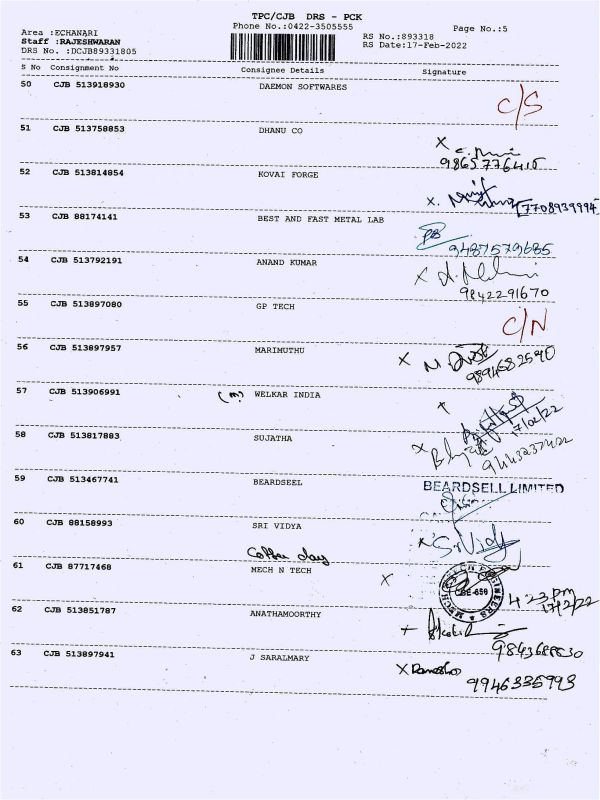 TPC/CJB DRS - PCK
Phone No.:0422-3505555
Page No.:5
Area :ECHANARI
Staff :RAJESHWARAN
DRS No. :DCJB89331805
RS No.:893318
RS Date:17-Feb-2022
S No Consignment No Consignee Details Signature
50 CJB 513918930 DAEMON SOFTWARES C/S
51 CJB 513758853 DHANU CO X
9865776410
52 CJB 513814854 KOVAI FORGE x. [7708939994]
53 CJB 88174141 BEST AND FAST METAL LAB
9487579685
54 CJB 513792191 ANAND KUMAR X
9842291670
55 CJB 513897080 GP TECH C/N
56 CJB 513897957 MARIMUTHU X
9894682590
57 CJB 513906991 (m) WELKAR INDIA
17/02/22
58 CJB 513817883 SUJATHA X
59 CJB 513467741 BEARDSEEL BEARDSELL LIMITED
60 CJB 88158993 SRI VIDYA x Srividy
Coffee day
61 CJB 87717468 MECH N TECH X CBE-650
4.23 pm
17/2/22
62 CJB 513851787 ANATHAMOORTHY
63 CJB 513897941 J SARALMARY X Ramesh
9946335993